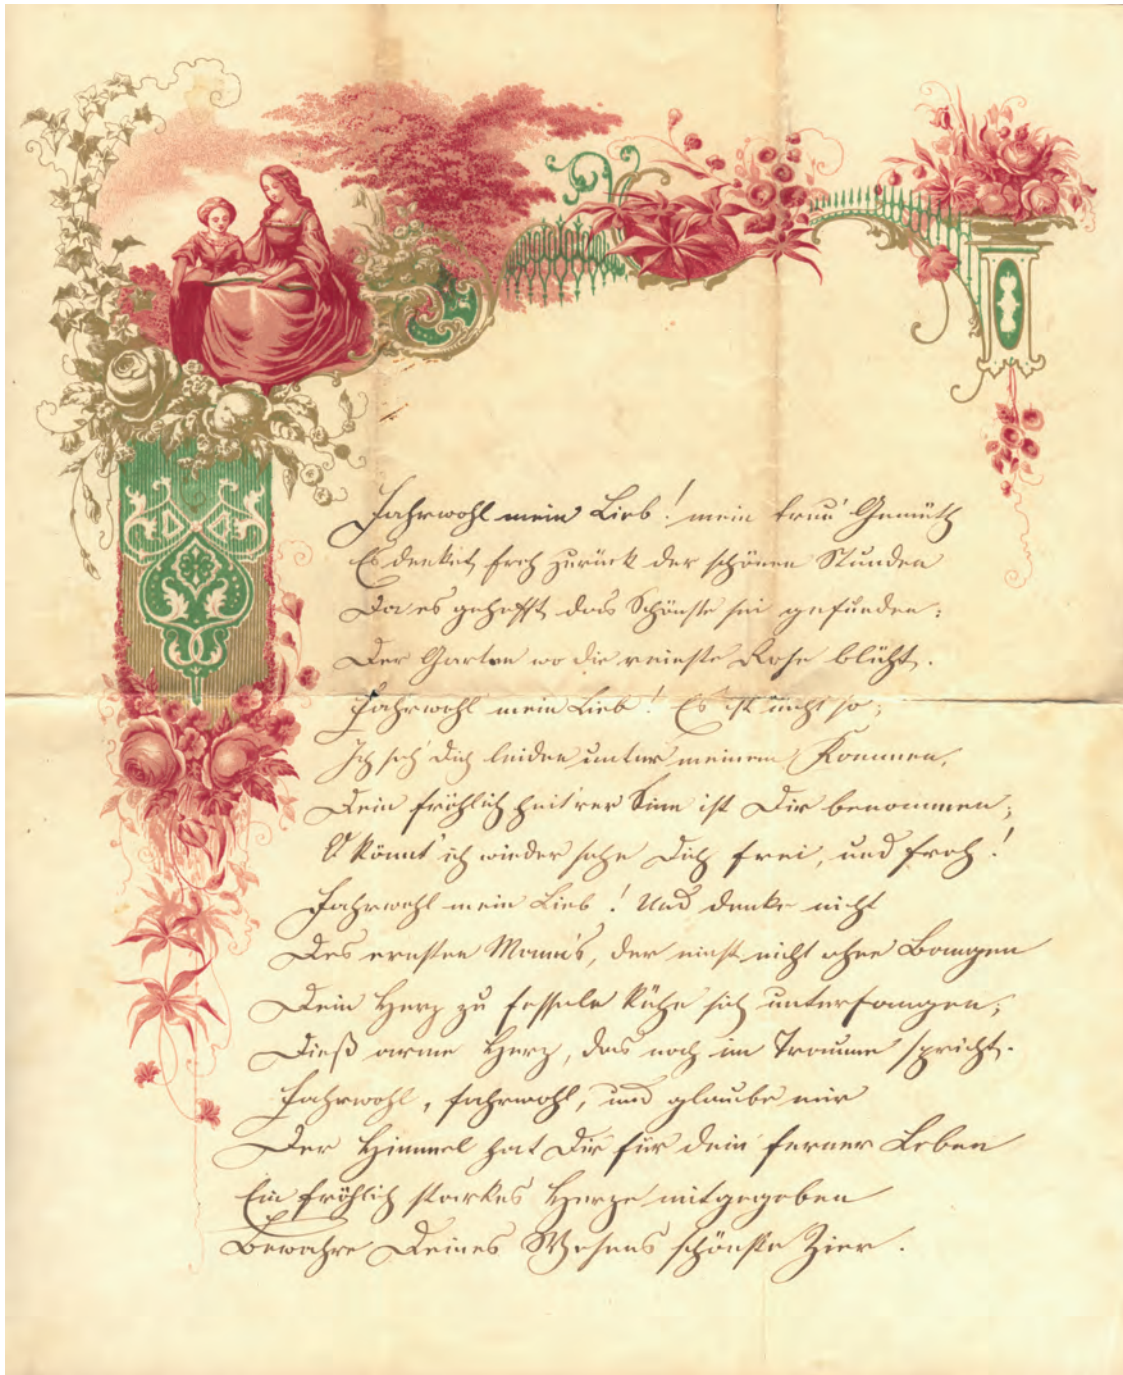 Fahrwohl mein Lieb! mein treu' Gemüth
Es denket froh zurück der schönen Stunden
Da es gehofft das Schönste sei gefunden:
Der Garten wo die reinste Rose blüht.
Fahrwohl mein Lieb! Es ist nicht so;
Ich seh' Dich leiden unter meinem Kommen,
Dein fröhlich heit'rer Sinn ist Dir benommen;
O könnt' ich wieder sehn Dich frei, und froh!
Fahrwohl mein Lieb! Und denke nicht
Des ernsten Mann's, der einst nicht ohne Bangen
Dein Herz zu fesseln kühn sich unterfangen;
Dieß arme Herz, das noch im Traume spricht.
Fahrwohl, fahrwohl, und glaube mir
Der Himmel hat Dir für dein ferner Leben
Ein fröhlich starkes Herze mitgegeben
Bewahre Deines Wesens schönste Zier.